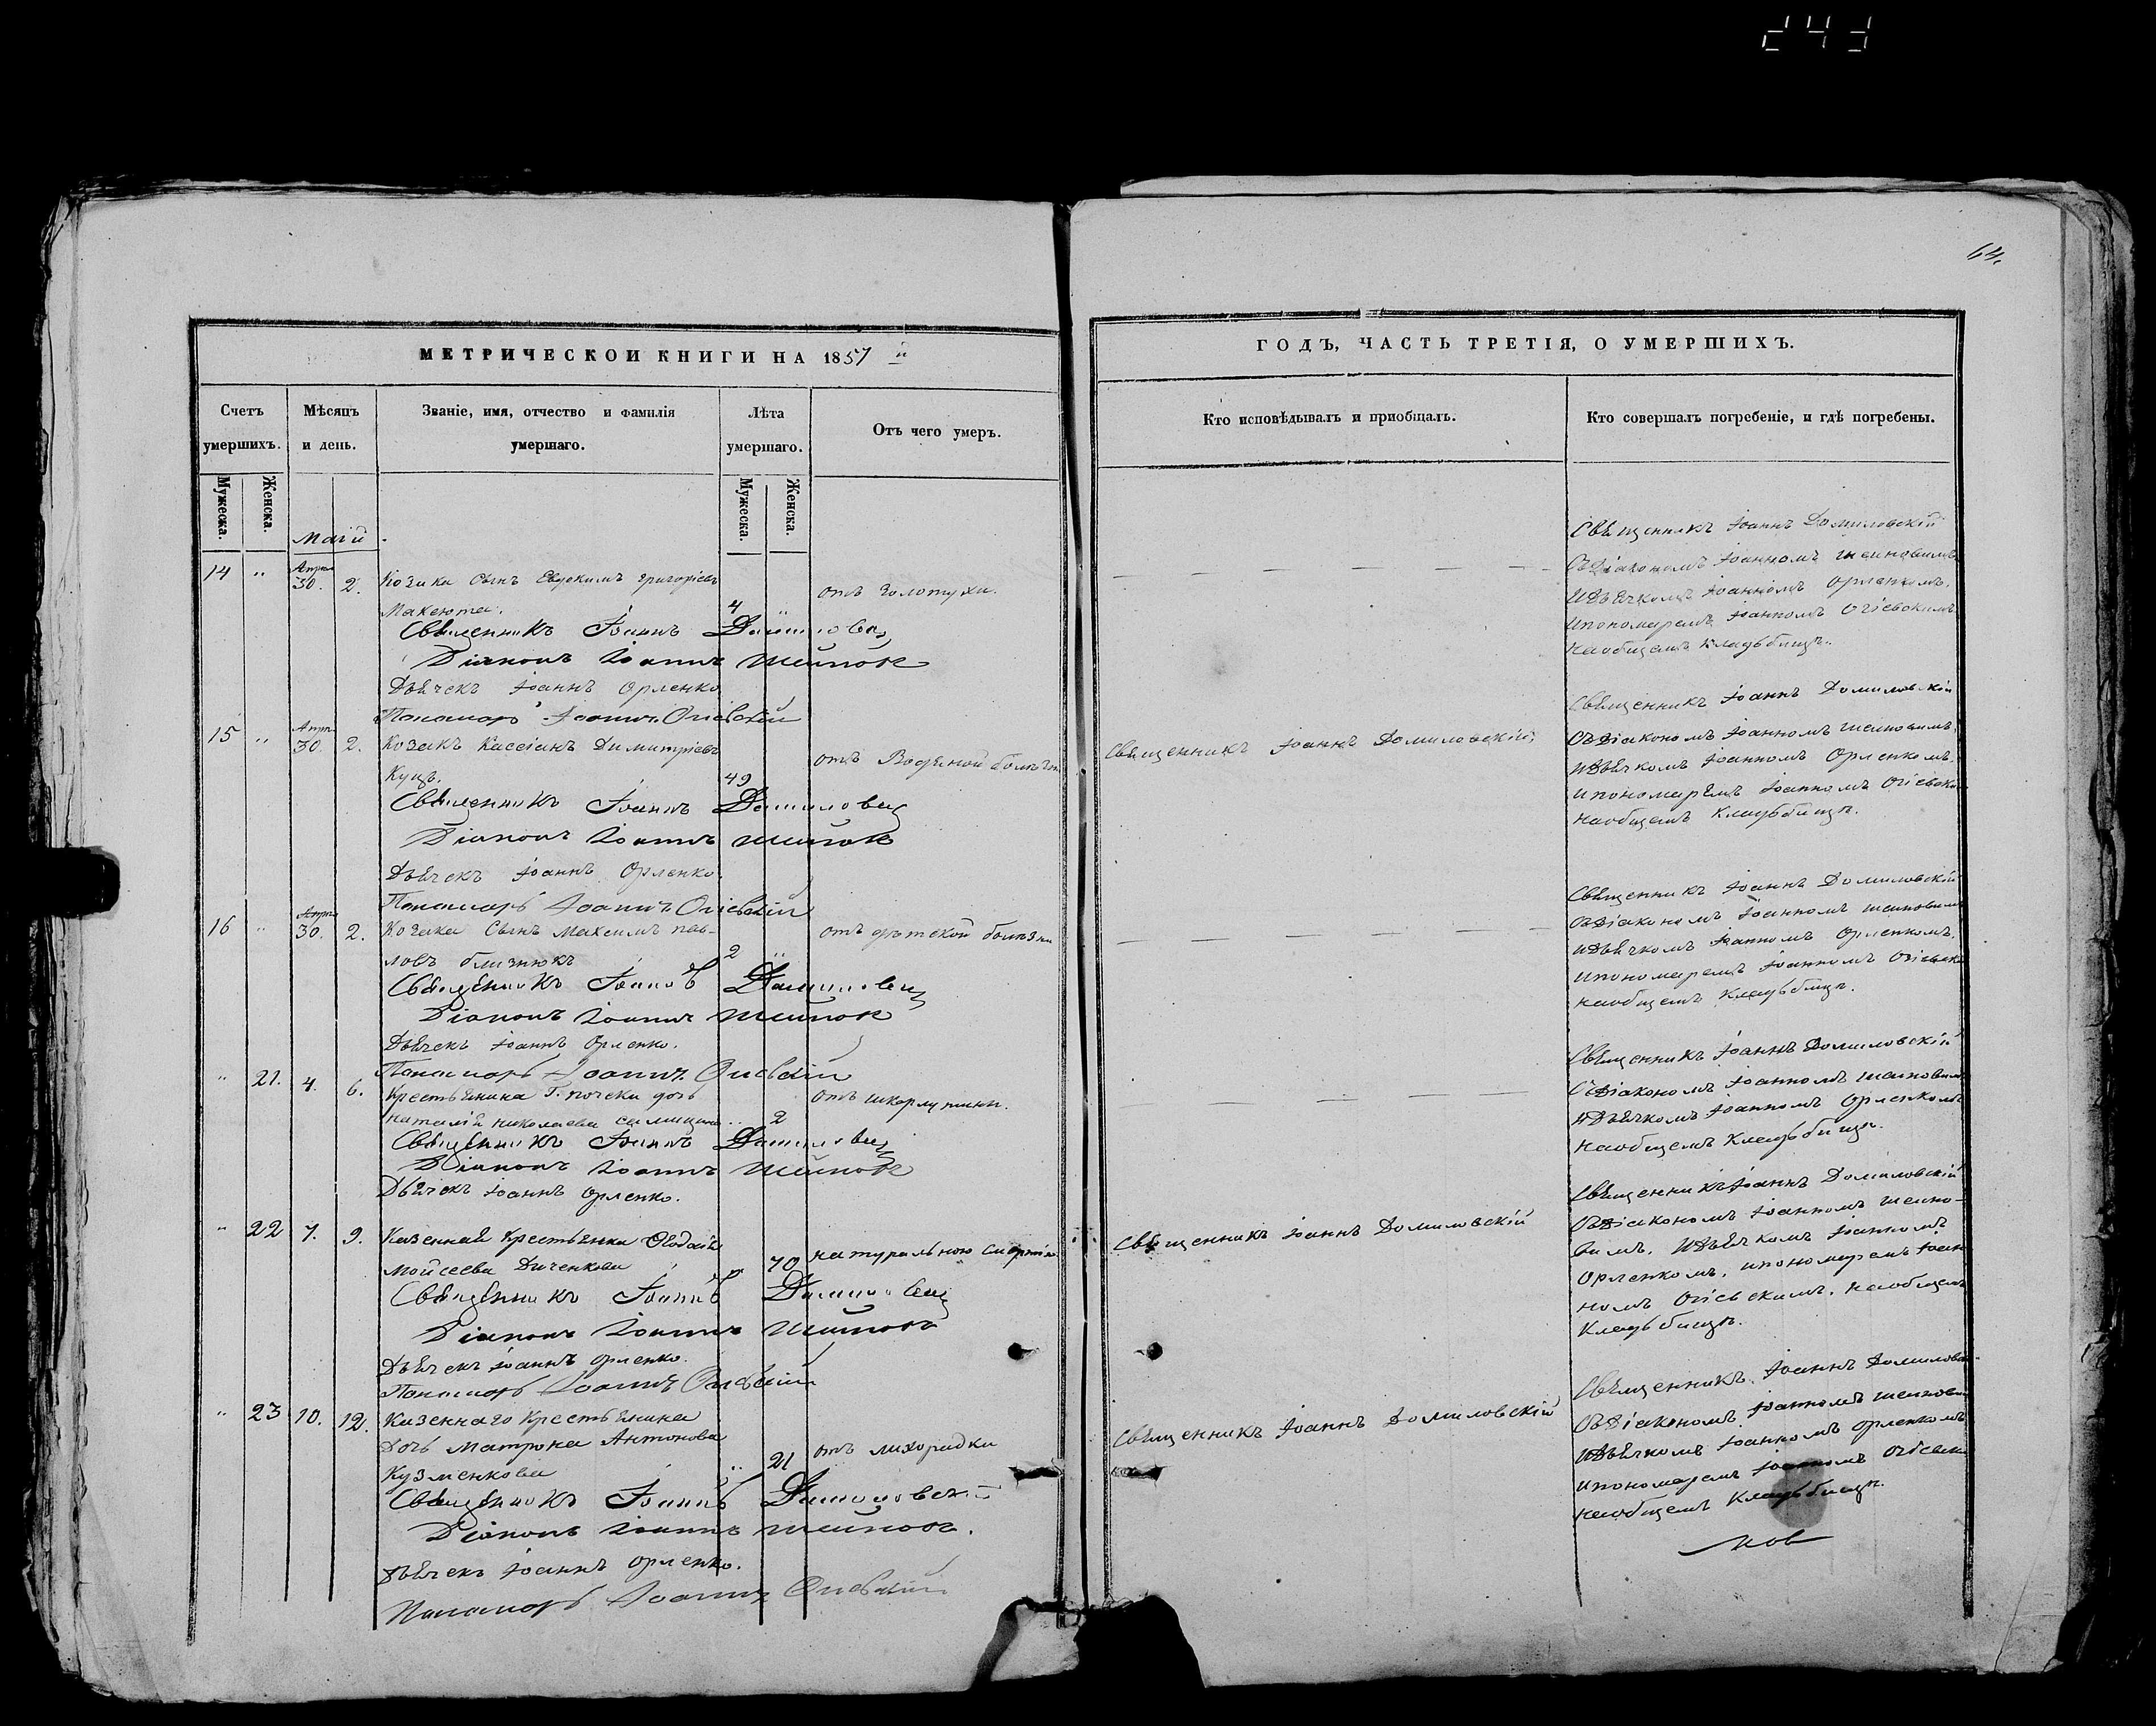 243
64.
МЕТРИЧЕСКОЙ КНИГИ НА 1857 й
ГОДЪ, ЧАСТЬ ТРЕТІЯ, О УМЕРШИХЪ.
Счетъ умершихъ.
Мѣсяцъ и день.
Званіе, имя, отчество и фамилія умершаго.
Лѣта умершаго.
Отъ чего умеръ.
Кто исповѣдывалъ и пріобщалъ.
Кто совершалъ погребеніе, и гдѣ погребены.
Мужеска. Женска.
Мужеска. Женска.
Маій.
14 " Апрѣл 30. 2. Козака Сынъ Евдокимъ Григоріевъ
Макеюта. 4 " отъ золотухи.
Священникъ Іоаннъ Домиловскій
Діаконъ Іоаннъ
Дьячекъ Іоаннъ Орленко
Понамарь Іоаннъ Огіевскій
Священникъ Іоаннъ Домиловскій
Съ Діакономъ Іоанномъ
И Дьячкомъ Іоанномъ Орленкомъ.
И пономаремъ Іоанномъ Огіевскимъ
на общемъ кладьбищѣ.
15 " Апрѣ 30. 2. Козакъ Кассіанъ Димитріевъ
Куцъ. 49 отъ Водяной болѣзни
Священникъ Іоаннъ Домиловскій
Діаконъ Іоаннъ
Дьячекъ Іоаннъ Орленко.
Понамарь Іоаннъ Огіевскій
Священникъ Іоаннъ Домиловскій
Священникъ Іоаннъ Домиловскій
Съ Діакономъ Іоанномъ
И Дьячкомъ Іоанномъ Орленкомъ.
и пономаремъ Іоанномъ Огіевски
на общемъ кладьбищѣ.
16 " Апрѣл 30. 2. Козака Сынъ Максимъ Пав-
ловъ близнюкъ 2 " отъ дѣтской болѣзни
Священникъ Іоаннъ Домиловскій
Діаконъ Іоаннъ
Дьячекъ Іоаннъ Орленко.
Понамарь Іоаннъ Огіевскій
Священникъ Іоаннъ Домиловскій
Съ Діакономъ Іоанномъ
И Дьячкомъ Іоанномъ Орленкомъ.
и пономаремъ Іоанномъ Огіевски
на общемъ кладьбищѣ.
" 21. 4. 6. Крестьянина Г. дочь
Наталія Николаева " 2 отъ шкорлупини.
Священникъ Іоаннъ Домиловскій
Діаконъ Іоаннъ
Дьячекъ Іоаннъ Орленко.
Священникъ Іоаннъ Домиловскій
Съ Діакономъ Іоанномъ
И Дьячкомъ Іоанномъ Орленкомъ
на общемъ кладьбищѣ.
" 22 7. 9. Казенная Крестьянка
Моисеева Диченкова 70 натуральною смертію
Священникъ Іоаннъ Домиловскій
Діаконъ Іоаннъ
Дьячекъ Іоаннъ Орленко.
Понамарь Іоаннъ Огіевскій
Священникъ Іоаннъ Домиловскій
Священникъ Іоаннъ Домиловскій
Съ Діакономъ Іоанномъ
И Дьячкомъ Іоанномъ
Орленкомъ, и пономаремъ Іоан
номъ Огіевскимъ. на общемъ
кладьбищѣ.
" 23 10. 12. Казеннаго Крестьянина
Дочь Матрона Антонова
Кузменкова " 21 отъ лихорадки
Священникъ Іоаннъ Домиловскій
Діаконъ Іоаннъ
Дьячекъ Іоаннъ Орленко.
Понамарь Іоаннъ Огіевскій
Священникъ Іоаннъ Домиловскій
Священникъ Іоаннъ Домиловск
Съ Діакономъ Іоанномъ
И Дьячкомъ Іоанномъ Орленкомъ
и пономаремъ Іоанномъ Огіевски
на общемъ кладьбищѣ.